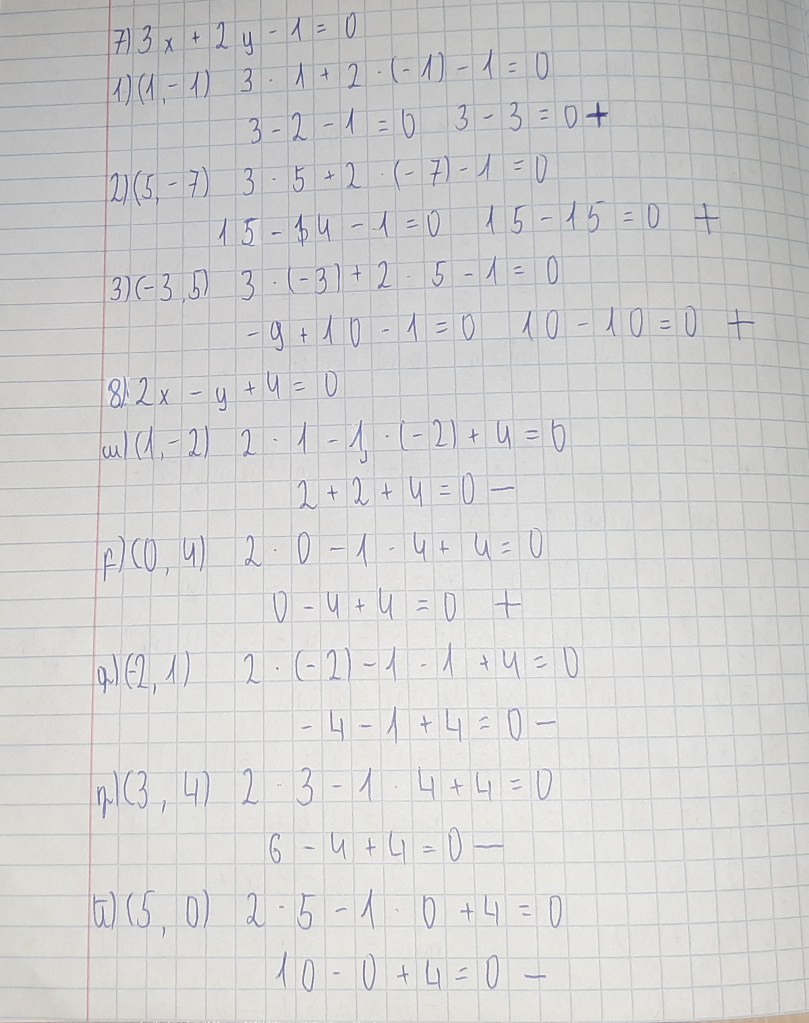 7) 3x + 2y - 1 = 0
1) (1, -1) 3 · 1 + 2 · (-1) - 1 = 0
3 - 2 - 1 = 0 3 - 3 = 0 +
2) (5, -7) 3 · 5 + 2 · (-7) - 1 = 0
15 - 14 - 1 = 0 15 - 15 = 0 +
3) (-3, 5) 3 · (-3) + 2 · 5 - 1 = 0
-9 + 10 - 1 = 0 10 - 10 = 0 +
8) 2x - y + 4 = 0
ա) (1, -2) 2 · 1 - 1 · (-2) + 4 = 0
2 + 2 + 4 = 0 -
բ) (0, 4) 2 · 0 - 1 · 4 + 4 = 0
0 - 4 + 4 = 0 +
գ) (-2, 1) 2 · (-2) - 1 · 1 + 4 = 0
-4 - 1 + 4 = 0 -
դ) (3, 4) 2 · 3 - 1 · 4 + 4 = 0
6 - 4 + 4 = 0 -
ե) (5, 0) 2 · 5 - 1 · 0 + 4 = 0
10 - 0 + 4 = 0 -